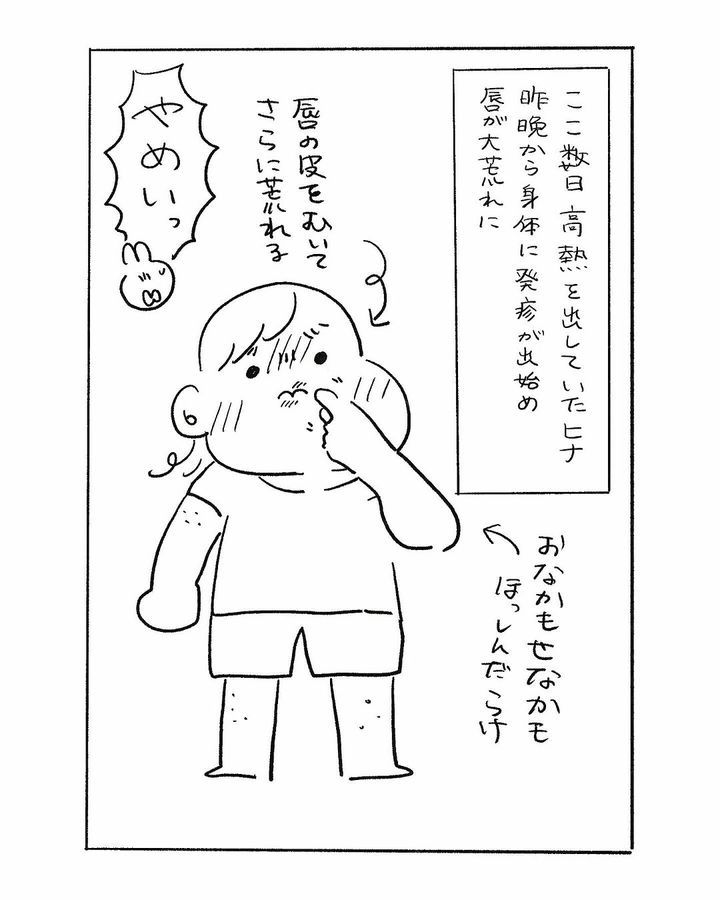 ここ数日高熱を出していたヒナ
昨晩から身体に発疹が出始め
唇が大荒れに
唇の皮をむいて
さらに荒れる
やめいっ
おなかもせなかも
ほっしんだらけ